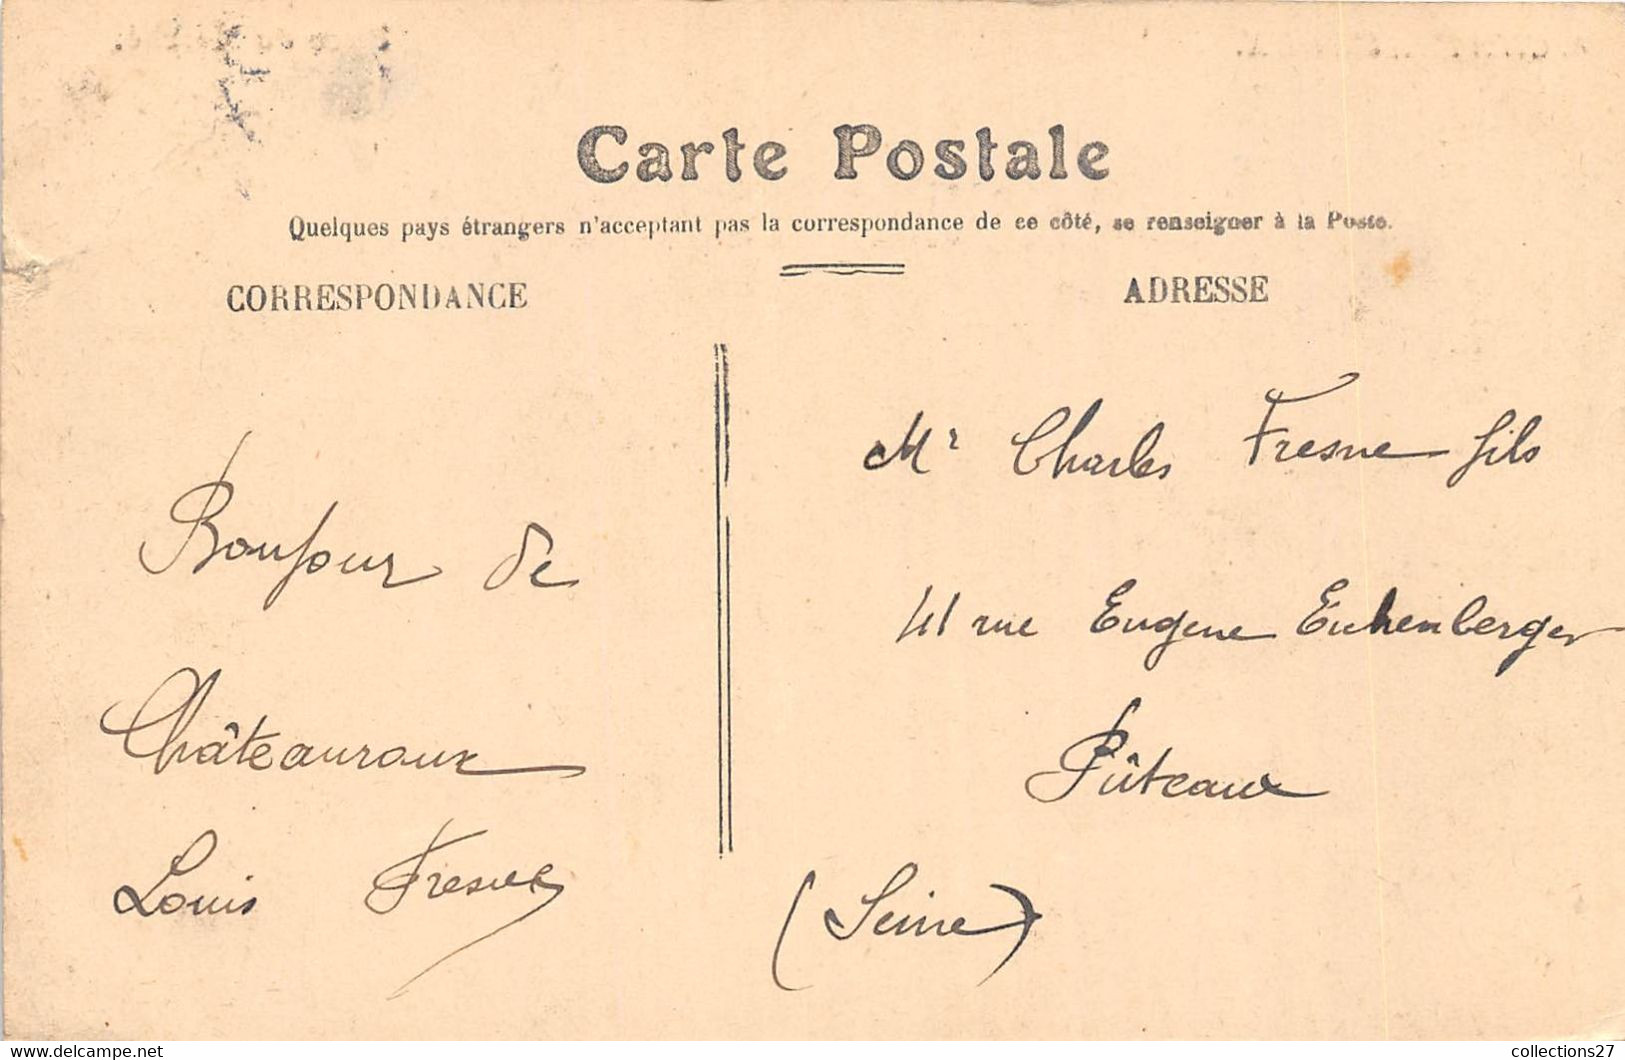 Carte Postale
Quelques pays étrangers n'acceptant pas la correspondance de ce côté, se renseigner à la Poste.
CORRESPONDANCE
Bonjour de
Châteauroux
Louis Fresne
ADRESSE
Mr Charles Fresne fils
41 rue Eugene Eichenberger
Pûteaux
(Seine)
collections27